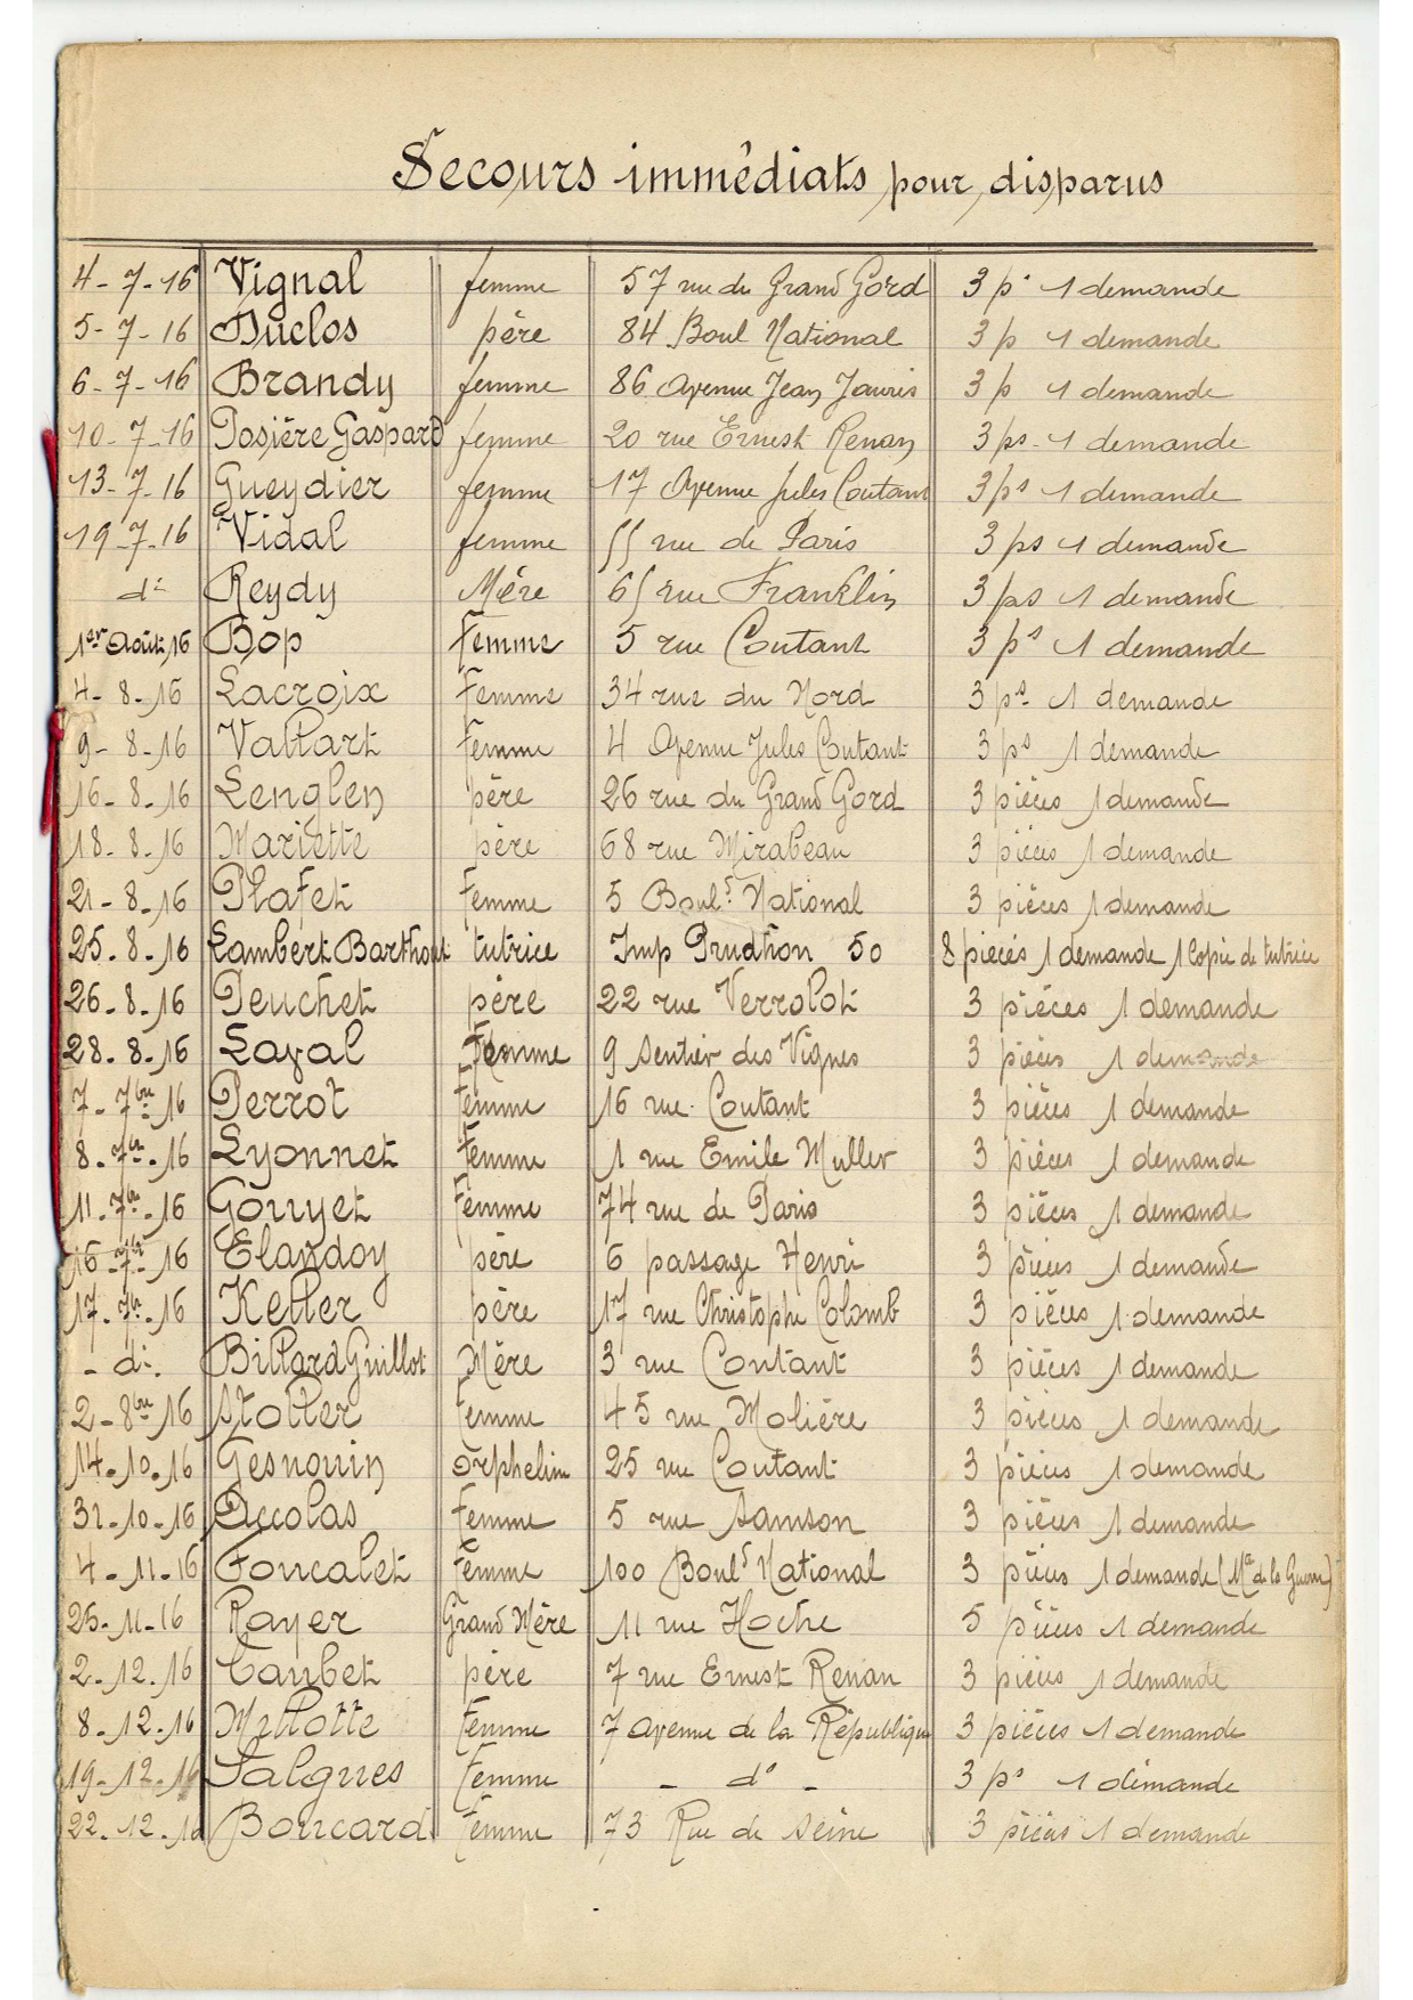 Secours immédiats pour disparus
4-7-16 Vignal femme 57 rue du Grand Gord 3 p. 1 demande
5-7-16 Duclos père 84 Boul National 3 p 1 demande
6-7-16 Brandy femme 86 Avenue Jean Jaurès 3 p 1 demande
10-7-16 Josière Gaspard femme 20 rue Ernest Renan 3 ps - 1 demande
13-7-16 Gueydier femme 17 Avenue Jules Coutant 3 ps 1 demande
19-7-16 Vidal femme 55 rue de Paris 3 ps 1 demande
do Reydy Mère 65 rue Franklin 3 ps 1 demande
1er Août 16 Bop Femme 5 rue Coutant 3 ps 1 demande
4-8-16 Lacroix Femme 34 rue du Nord 3 ps - 1 demande
9-8-16 Vallart Femme 4 Avenue Jules Coutant 3 ps 1 demande
16-8-16 Lenglen père 26 rue du Grand Gord 3 pièces 1 demande
18-8-16 Mariette père 68 rue Mirabeau 3 pièces 1 demande
21-8-16 Plafet Femme 5 Bouls National 3 pièces 1 demande
25-8-16 Lambert Barthout tutrice Imp Prudhon 50 8 pièces 1 demande 1 Copie de tutrice
26-8-16 Peuchet père 22 rue Verrolot 3 pièces 1 demande
28-8-16 Laval Femme 9 Sentier des Vignes 3 pièces 1 demande
7-7bre-16 Perrot Femme 16 rue Coutant 3 pièces 1 demande
8-7bre-16 Lyonnet Femme 1 rue Emile Muller 3 pièces 1 demande
11-7bre-16 Gouyet Femme 74 rue de Paris 3 pièces 1 demande
16-7bre-16 Elandoy père 6 passage Henri 3 pièces 1 demande
17-7bre-16 Keller père 17 rue Christophe Colomb 3 pièces 1 demande
- do. Billard Guillot Mère 3 rue Coutant 3 pièces 1 demande
2-8bre 16 Stoller Femme 45 rue Molière 3 pièces 1 demande
14-10-16 Gesnouin orphelin 25 rue Coutant 3 pièces 1 demande
31-10-16 Accolas Femme 5 rue Samson 3 pièces 1 demande
4-11-16 Foucalet Femme 100 Bouls National 3 pièces 1 demande (Me de la Guerre)
25-11-16 Rayer Grand Mère 11 rue Hoche 5 pièces 1 demande
2-12-16 Caubet père 7 rue Ernest Renan 3 pièces 1 demande
8-12-16 Millotte Femme 7 avenue de la République 3 pièces 1 demande
19-12-16 Salgues Femme - do - 3 ps 1 demande
22-12-16 Boucard Femme 73 Rue de Seine 3 pièces 1 demande